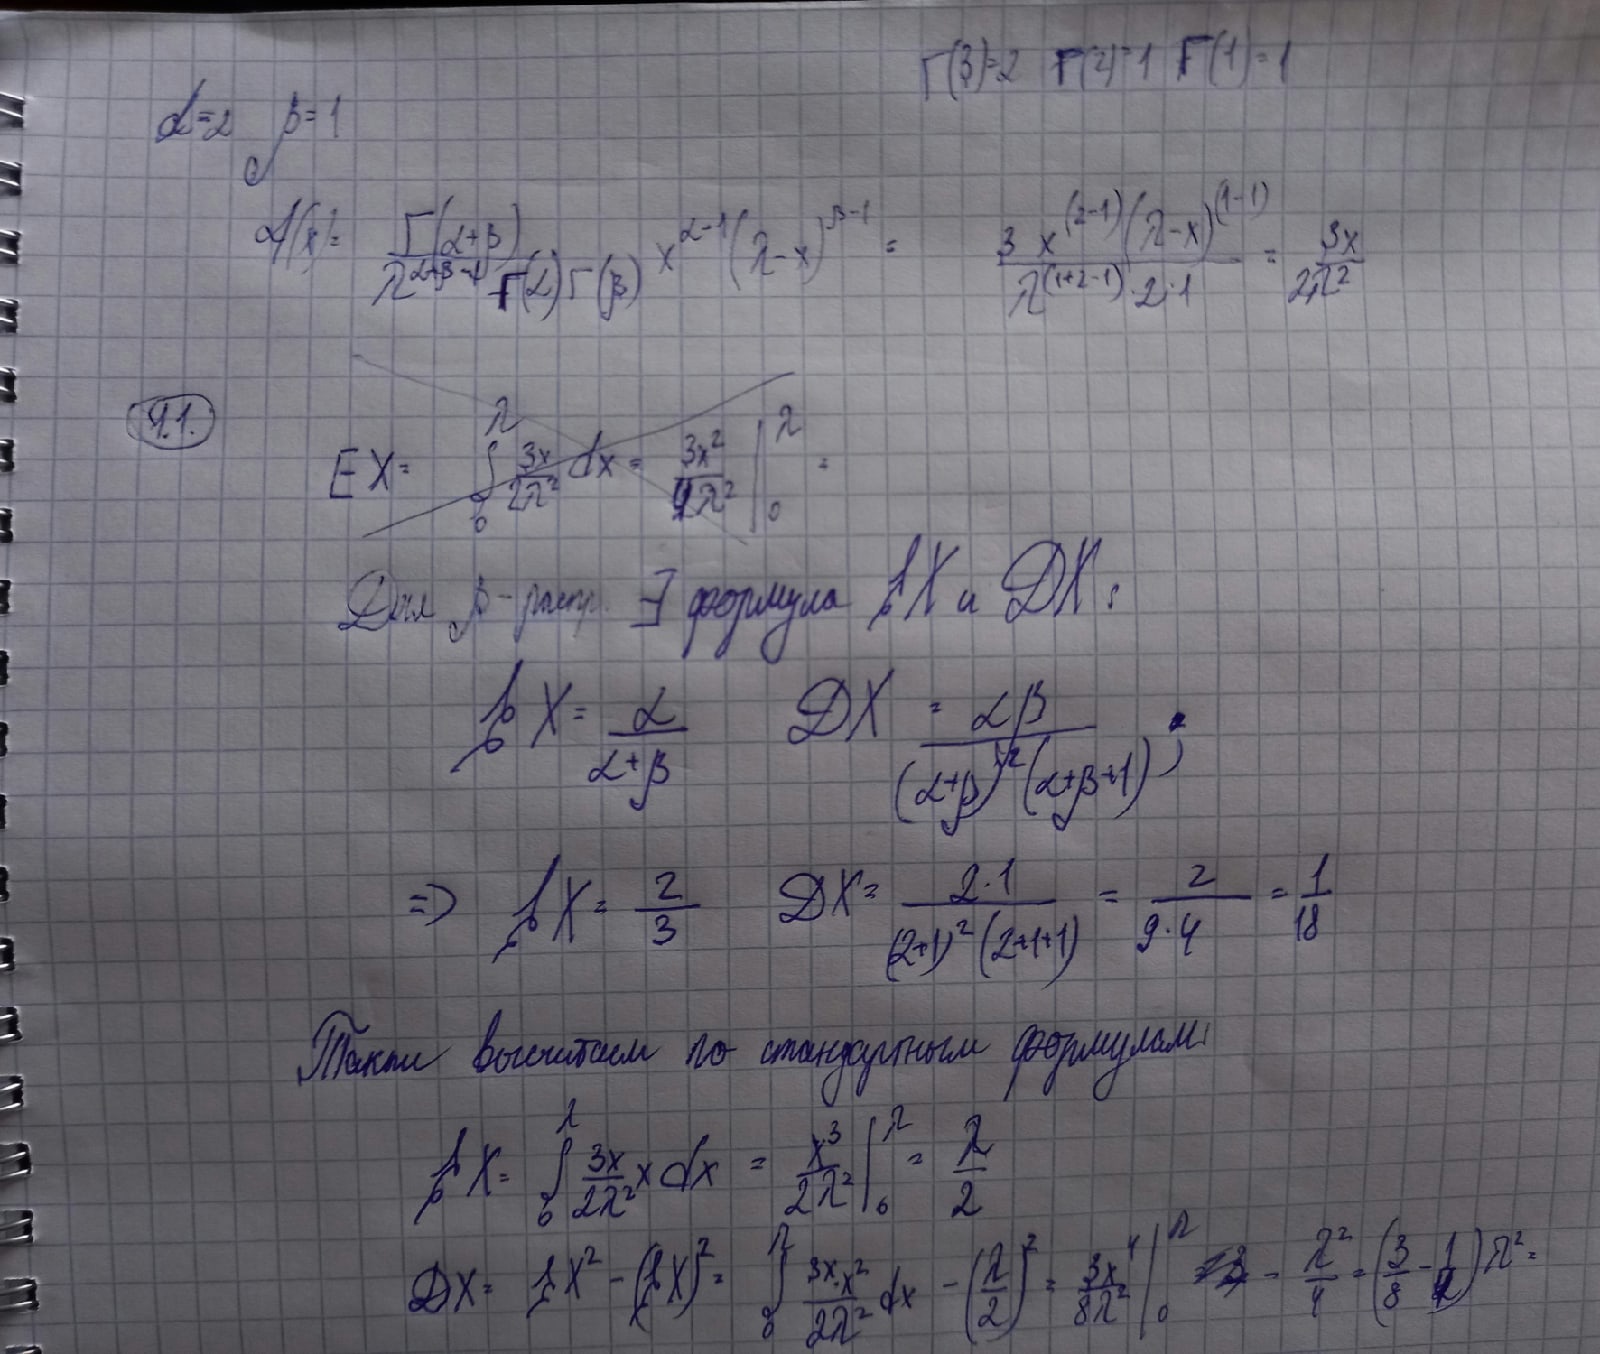 Γ(3)=2 Γ(2)=1 Γ(1)=1
α=2 β=1
f(x)= Γ(α+β) / (λ^(α+β-1) Γ(α)Γ(β)) x^(α-1) (λ-x)^(β-1) = 3 x^(2-1) (λ-x)^(1-1) / (λ^(1+2-1) · 2·1) = 3x / 2λ²
4.1.
EX= ∫₀^λ 3x/2λ² dx = 3x²/4λ² |₀^λ =
Для β-распр. ∃ формула EX и DX:
EX = α/(α+β) DX = αβ / ((α+β)²(α+β+1)) ;
=> EX = 2/3 DX = 2·1 / ((2+1)²(2+1+1)) = 2 / 9·4 = 1/18
EX= ∫₀^λ 3x/2λ² x dx = x³/2λ² |₀^λ = λ/2
DX= EX² - (EX)² = ∫₀^λ 3x·x²/2λ² dx - (λ/2)² = 3x⁴/8λ² |₀^λ - λ²/4 = (3/8 - 1/4) λ² =